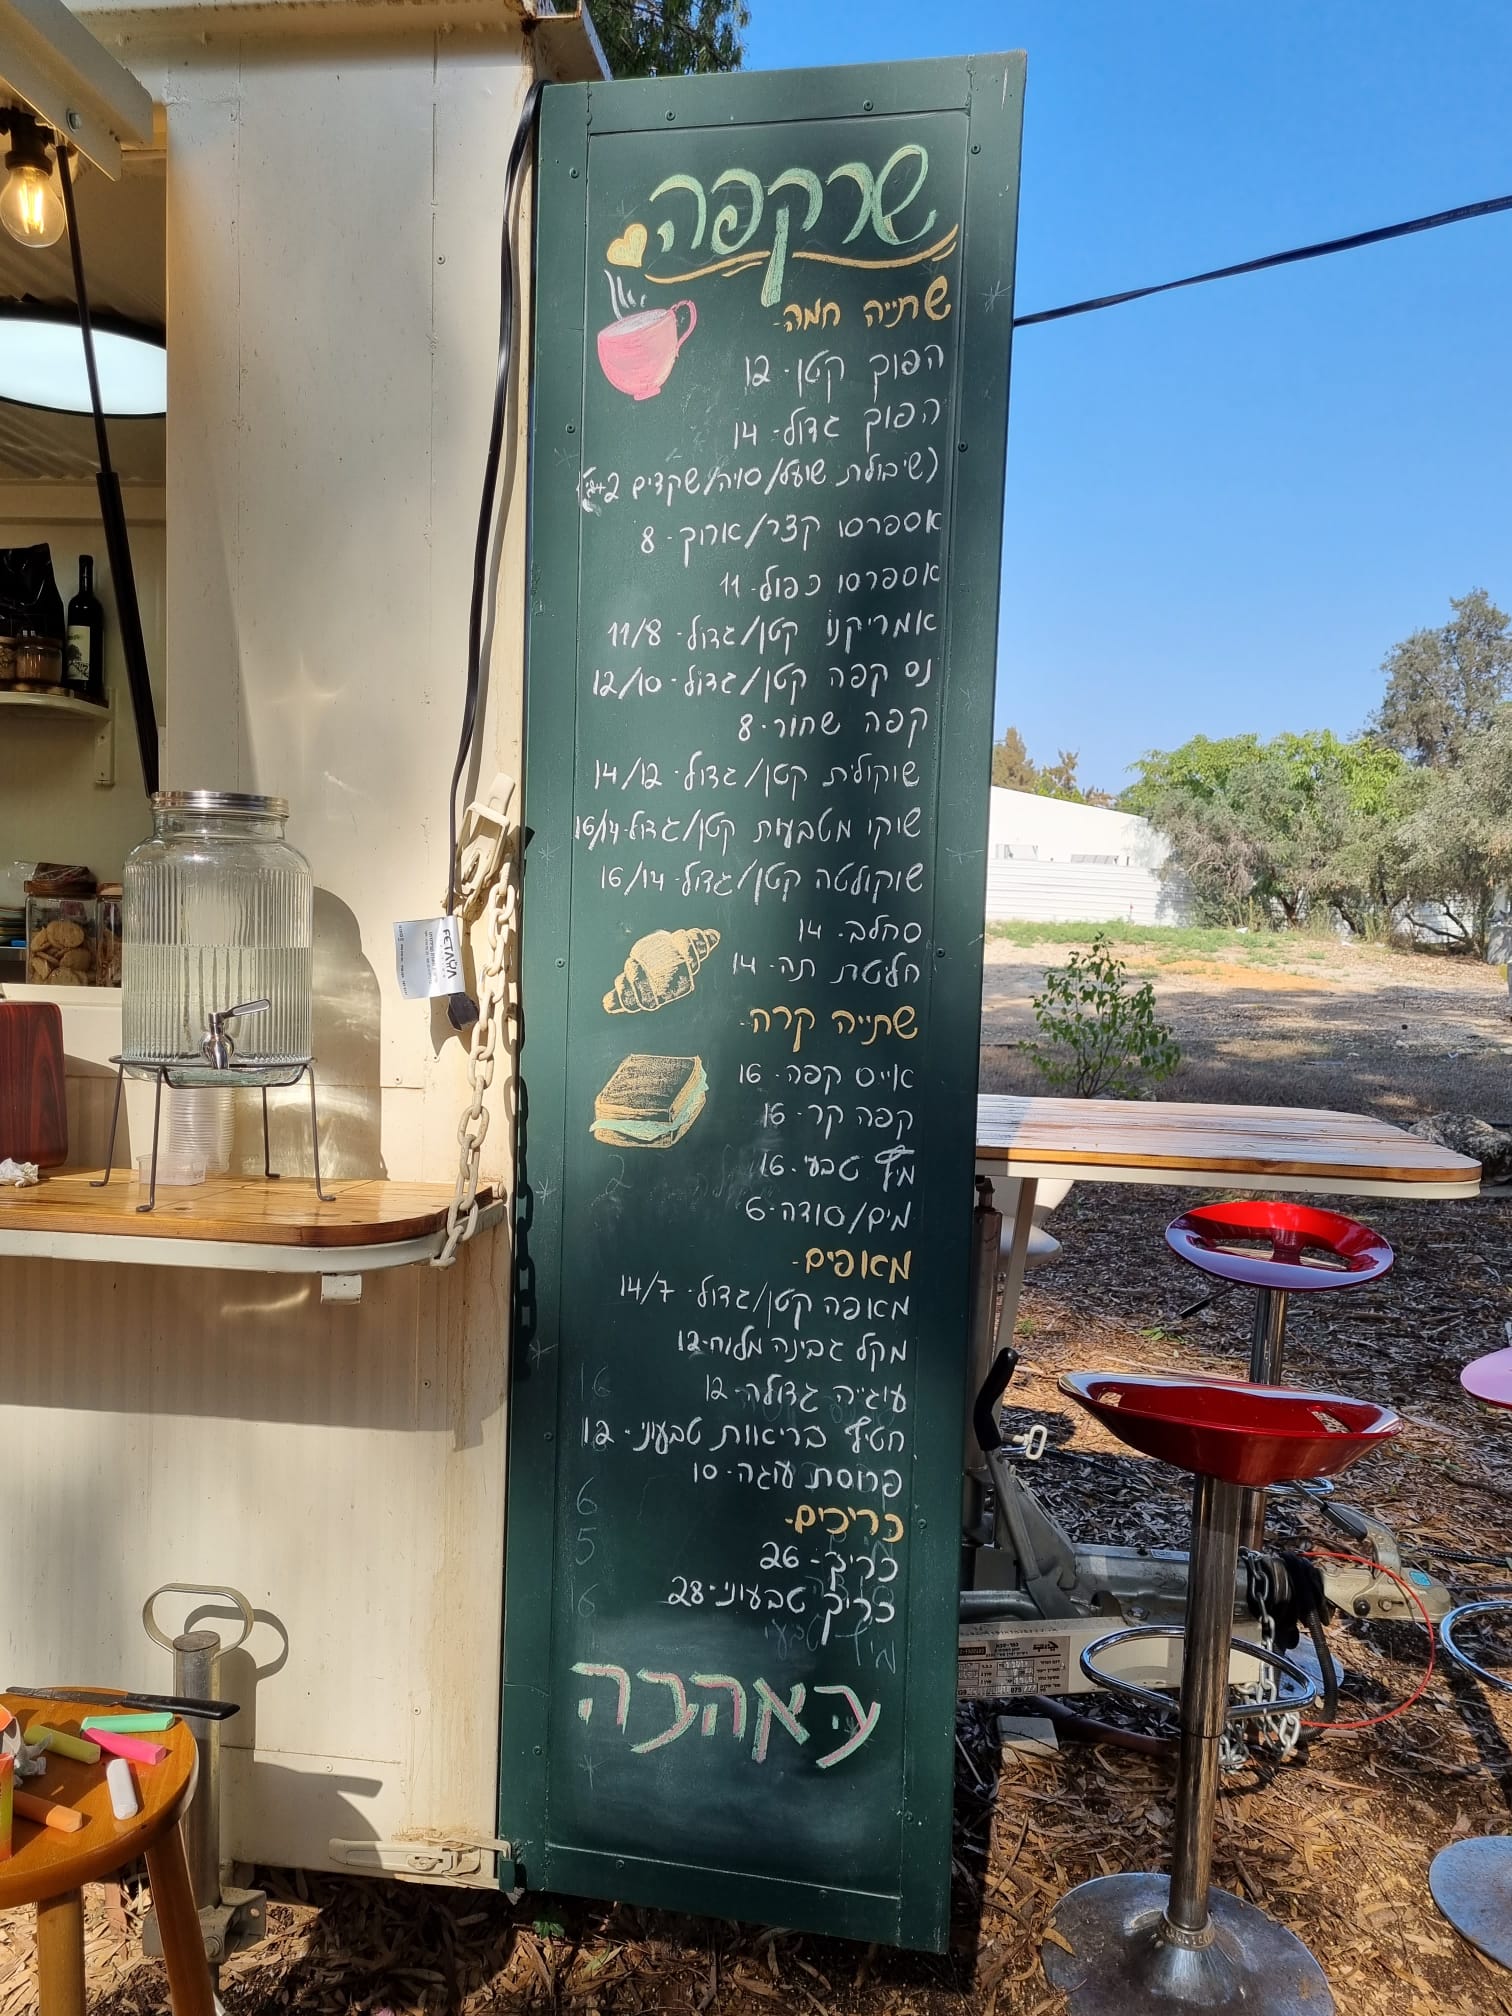 שרקפה
שתייה חמה-
הפוך קטן - 12
הפוך גדול - 14
(שיבולת שועל/סויה/שקדים 2+)
אספרסו קצר/ארוך - 8
אספרסו כפול - 11
אמריקנו קטן/גדול - 11/8
נס קפה קטן/גדול - 12/10
קפה שחור - 8
שוקולית קטן/גדול - 14/12
שוקו מטבעות קטן/גדול - 16/14
שוקולטה קטן/גדול - 16/14
סחלב - 14
חליטת תה - 14
שתייה קרה-
אייס קפה - 16
קפה קר - 16
מיץ טבעי - 16
מים/סודה - 6
מאפים-
מאפה קטן/גדול - 14/7
מקל גבינה מלוח - 12
עוגייה גדולה - 12
חטיף בריאות טבעוני - 12
פרוסת עוגה - 10
כריכים-
כריך - 26
כריך טבעוני - 28
מיץ טבעי
באהבה
FETAYA